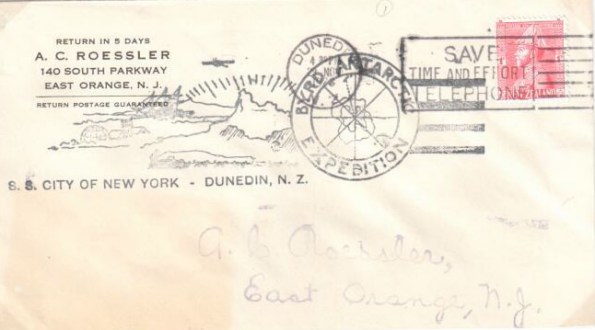 RETURN IN 5 DAYS
A. C. ROESSLER
140 SOUTH PARKWAY
EAST ORANGE, N. J.
RETURN POSTAGE GUARANTEED
DUNEDIN
BYRD ANTARCTIC
EXPEDITION
SAVE
TIME AND EFFORT
TELEPHONE
S. S. CITY OF NEW YORK - DUNEDIN, N. Z.
A. C. Roessler,
East Orange, N.J.